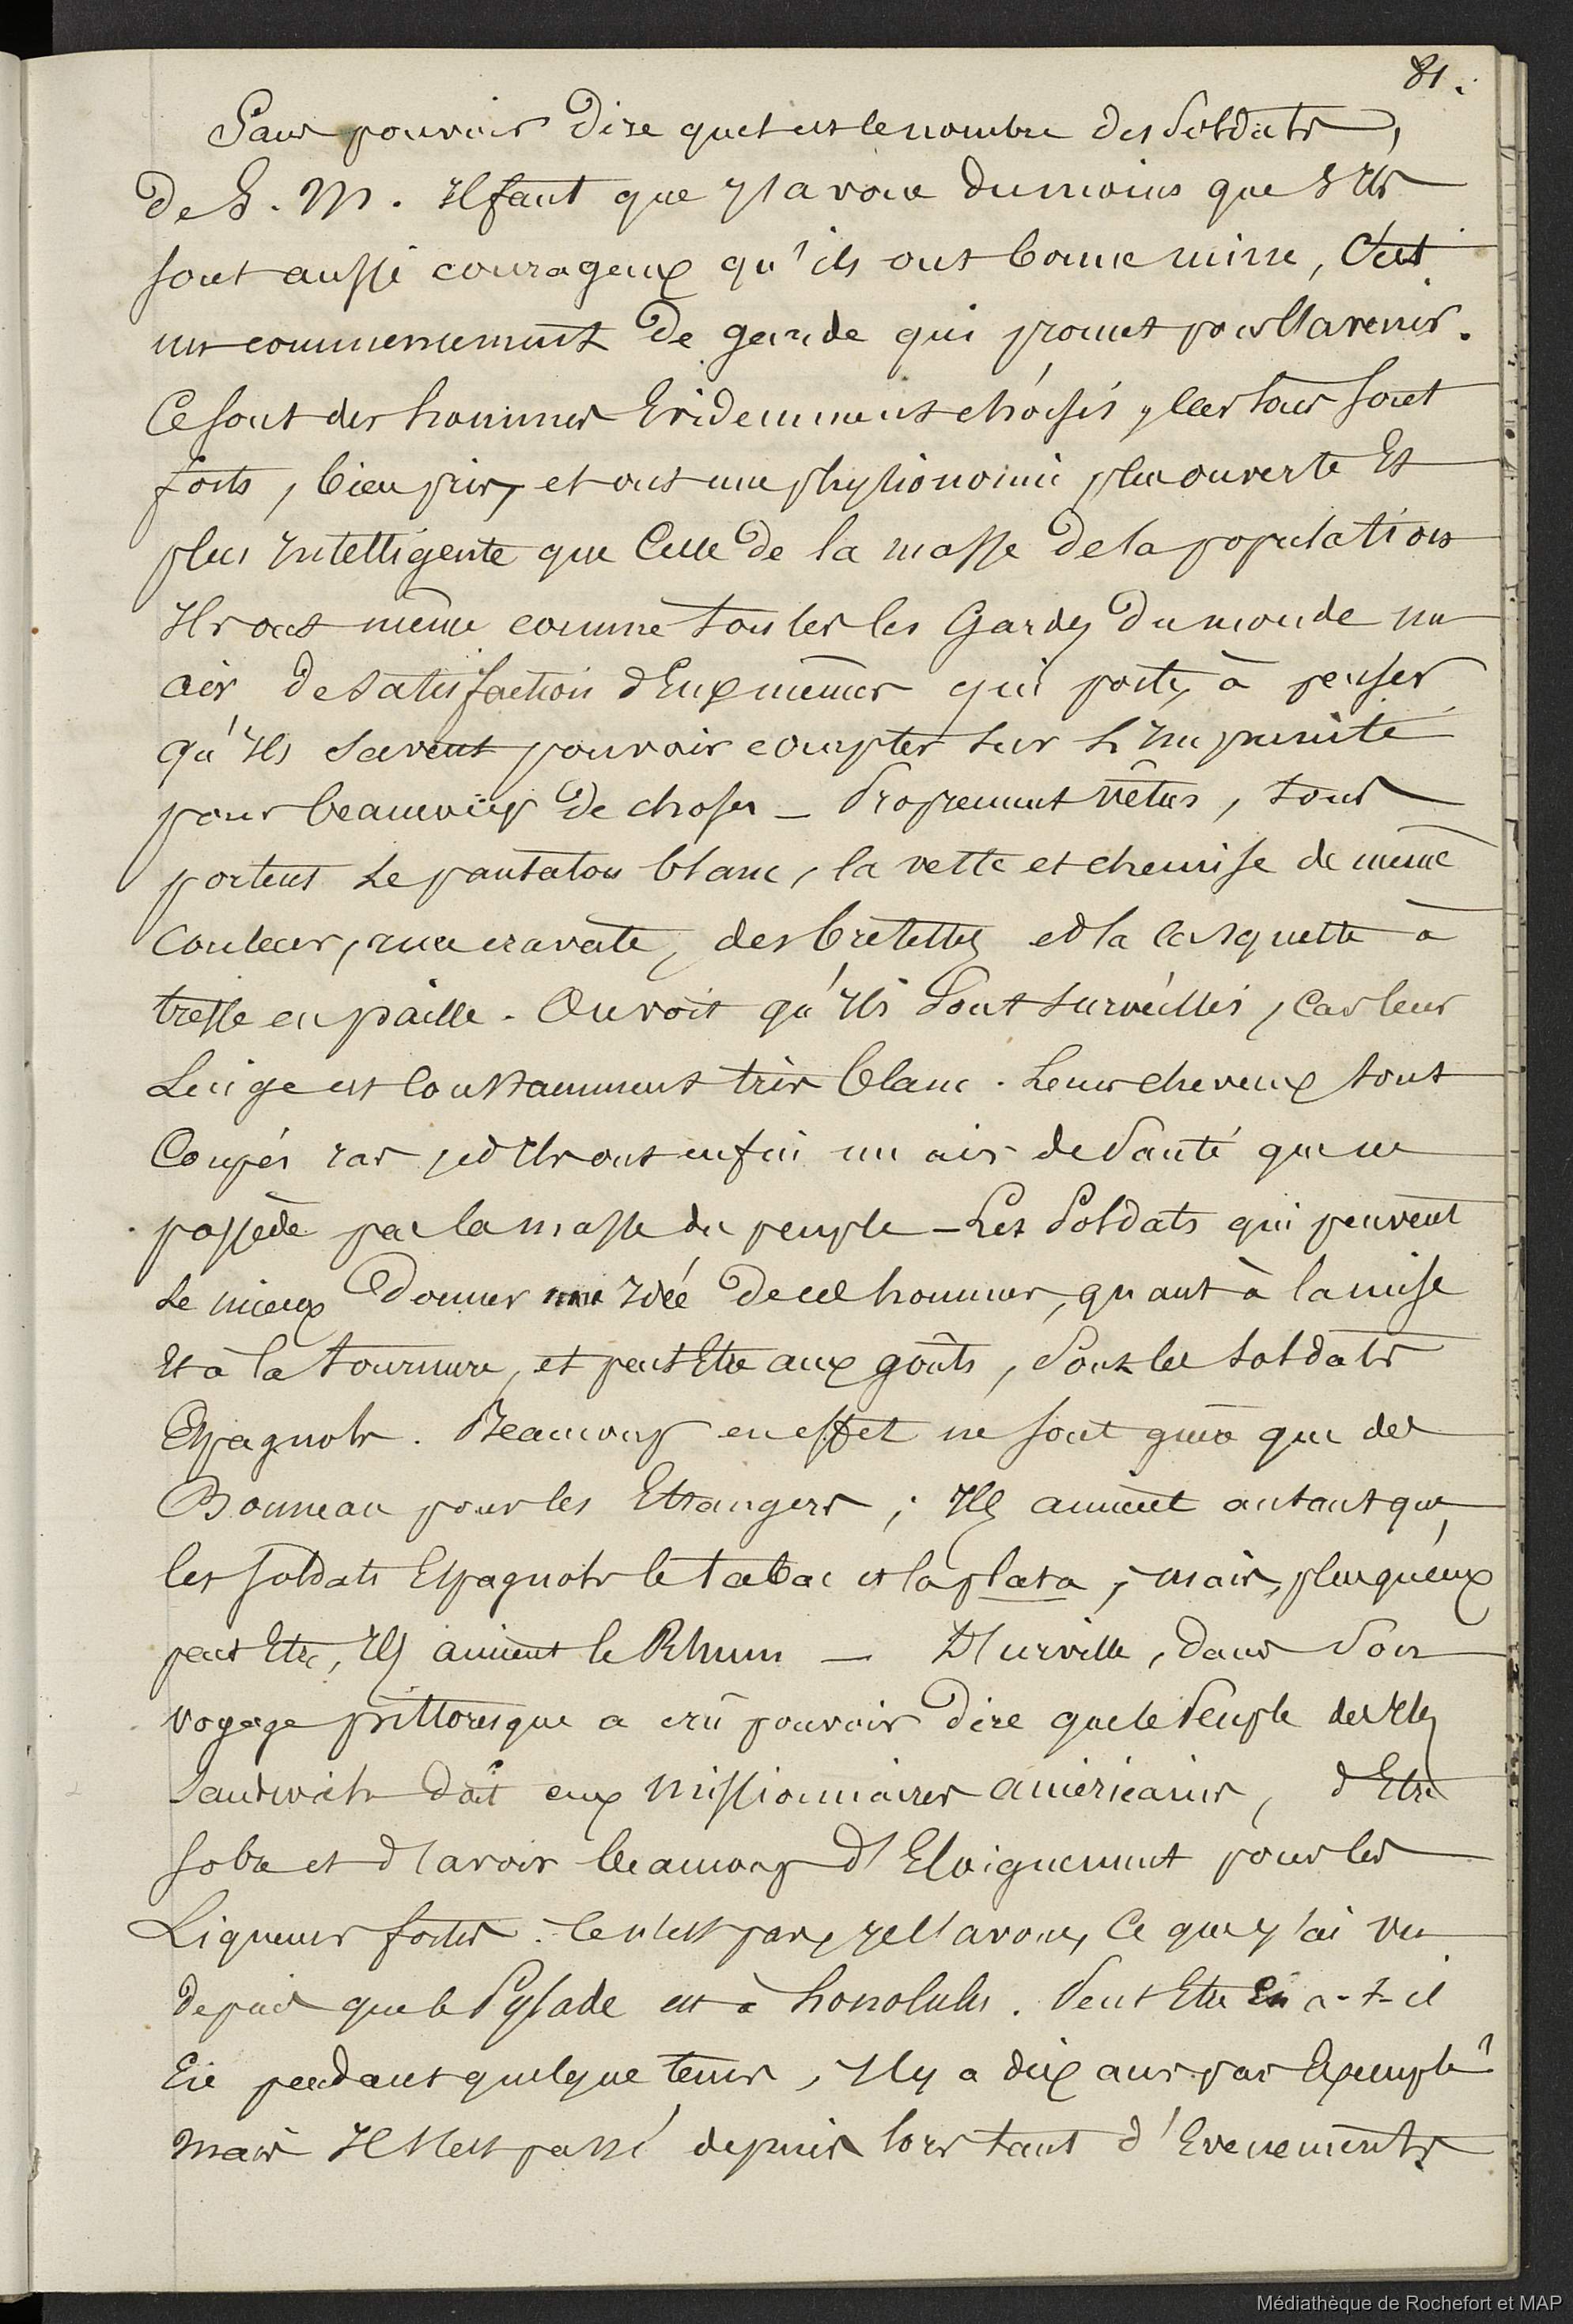 81.
Sans pouvoir dire quel est le nombre des Soldats,
de S. M. Il faut que j'avoue du moins que S'Ils
sont aussi courageux qu'ils ont bonne mine, C'est
un commencement de garde qui promet pour l'avenir.
Ce sont des hommes Evidemment choisis, Car tous sont
forts, bien pris, et ont une physionomie plus ouverte Et
plus Intelligente que Celle de la masse de la population
Ils ont même comme toutes les Gardes du monde un
air de satisfaction d'Eux mêmes qui porte, à penser
qu'Ils Savent pouvoir compter sur L'Impunité
pour beaucoup de choses _ Proprement vêtus, tous
portent Le pantalon blanc, la veste et chemise de même
Couleur, une cravate, des bretelles et la Casquette à
tresse en paille. On voit qu'Ils Sont surveillés, Car leur
Linge est Constamment très blanc. Leurs cheveux sont
Coupés ras, et Ils ont enfin un air de Santé que ne
possède pas la masse du peuple _ Les Soldats qui peuvent
Le mieux donner une Idée de ces hommes, quant à la mise
Et à la tournure, et peut Etre aux goûts, Sont les soldats
Espagnols. Beaucoup en effet ne sont guère que des
Bonneau pour les Etrangers; Ils aiment autant que
les soldats Espagnols le tabac et la plata; mais, plus qu'eux
peut Etre, Ils aiment le Rhum _ D'Urville, dans Son
voyage pittoresque a crû pouvoir dire que le Peuple des Iles
Sandwich doit aux Missionnaires américains, d'Etre
sobre et d'avoir beaucoup d'Eloignement pour les
Liqueurs fortes. Ce n'est pas, je l'avoue, Ce que j'ai vu
depuis que le Pylade est à honolulu. Peut Etre En a-t-il
Eié pendant quelque tems, Il y a dix ans par Exemple?
Mais Il s'est passé depuis lors tant d'Evenements